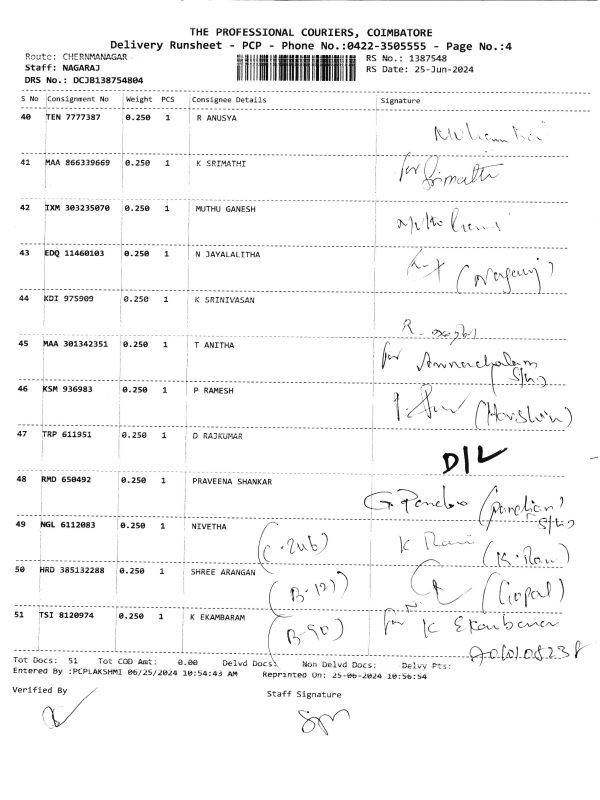 THE PROFESSIONAL COURIERS, COIMBATORE
Delivery Runsheet - PCP - Phone No.:0422-3505555 - Page No.:4
Route: CHERNMANAGAR RS No.: 1387548
Staff: NAGARAJ RS Date: 25-Jun-2024
DRS No.: DCJB138754804
S No Consignment No Weight PCS Consignee Details Signature
40 TEN 7777387 0.250 1 R ANUSYA
41 MAA 866339669 0.250 1 K SRIMATHI for Srimathi
42 IXM 303235070 0.250 1 MUTHU GANESH
43 EDQ 11460103 0.250 1 N JAYALALITHA
44 KDI 975909 0.250 1 K SRINIVASAN R.
45 MAA 301342351 0.250 1 T ANITHA for Annachalam S/W
46 KSM 936983 0.250 1 P RAMESH
47 TRP 611951 0.250 1 D RAJKUMAR D/L
48 RMD 650492 0.250 1 PRAVEENA SHANKAR (Pandian) S/W
49 NGL 6112083 0.250 1 NIVETHA (C-246) K Rani (K. Rani)
50 HRD 385132288 0.250 1 SHREE ARANGAN (B-127) (Gopal)
51 TSI 8120974 0.250 1 K EKAMBARAM (B-90) for K Ekambaram
Tot Docs: 51 Tot COD Amt: 0.00 Delvd Docs: Non Delvd Docs: Delvy Pts:
Entered By :PCPLAKSHMI 06/25/2024 10:54:43 AM Reprinted On: 25-06-2024 10:56:54
Verified By Staff Signature